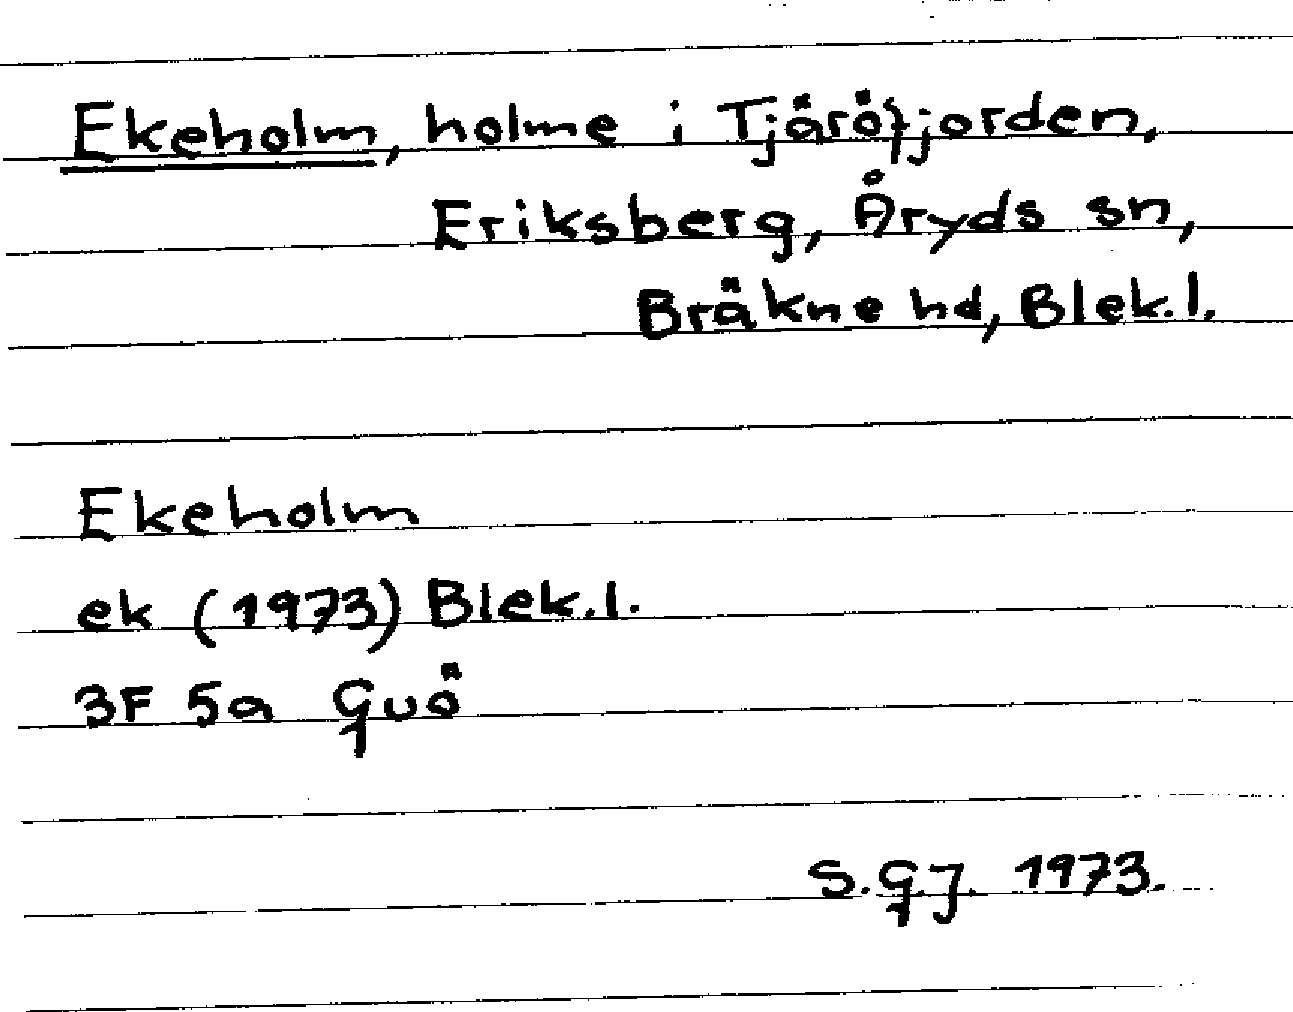 Ekeholm, holme i Tjäröfjorden,
Eriksberg, Åryds sn,
Bräkne hd, Blek.l.
Ekeholm
ek (1973) Blek.l.
3F 5a Guö
S.G.J. 1973.